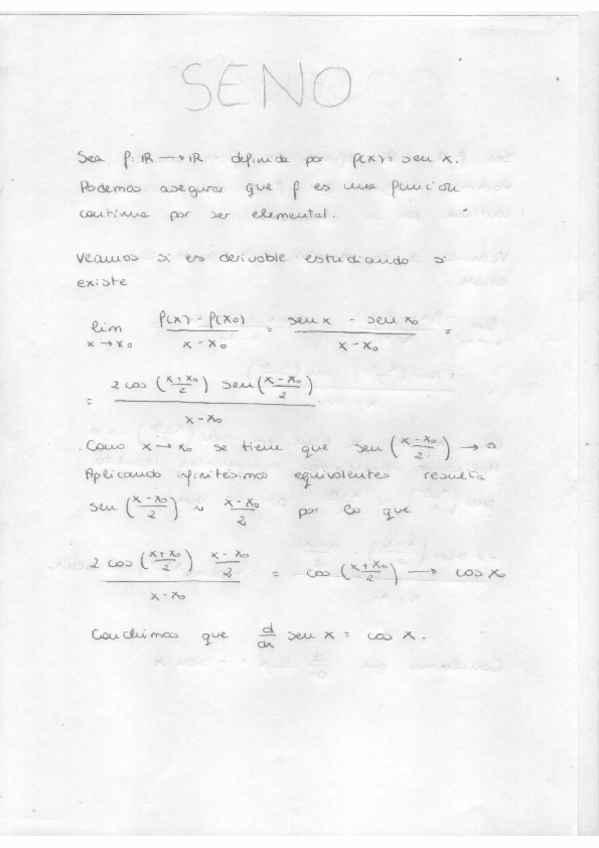 SENO
Sea f: ℝ → ℝ definida por f(x) = sen x.
Podemos asegurar que f es una funcion
continua por ser elemental.
Veamos si es derivable estudiando si
existe
lim_{x → x₀} (f(x) - f(x₀))/(x - x₀) = (sen x - sen x₀)/(x - x₀) =
= (2 cos((x + x₀)/2) sen((x - x₀)/2))/(x - x₀)
Como x → x₀ se tiene que sen((x - x₀)/2) → 0
Aplicando infinitésimos equivalentes resulta
sen((x - x₀)/2) ~ (x - x₀)/2 por lo que
(2 cos((x + x₀)/2) (x - x₀)/2)/(x - x₀) = cos((x + x₀)/2) → cos x₀
Concluimos que d/dx sen x = cos x.